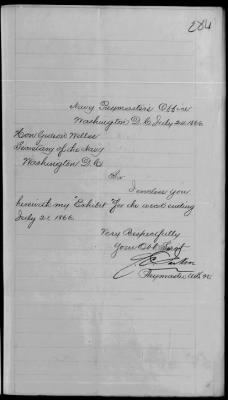 284
Navy Paymasters Office
Washington D.C. July 24 1866
Hon Gideon Welles
Secretary of the Navy
Washington D.C.
Sir
I enclose you
herewith my "Exhibit" for the week ending
July 21 1866
Very Respectfully
Your Obt Servt
Paymaster U.S.N.